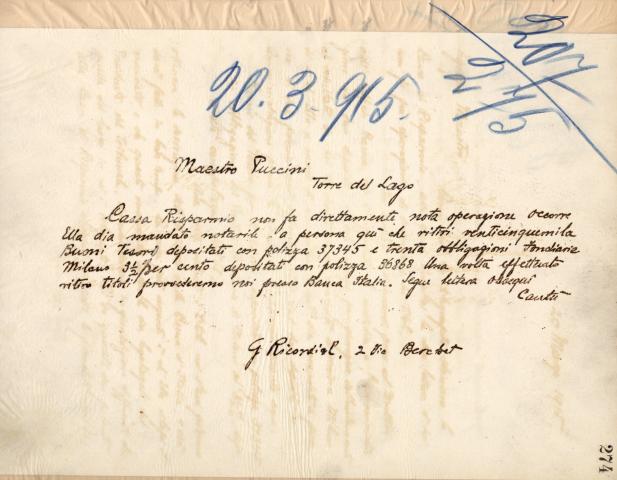 20.3.915.
Maestro Puccini
Torre del Lago
Cassa Risparmio non fa direttamente nota operazione occorre
Ella dia mandato notarile a persona qui che ritiri venticinquemila
Buoni Tesoro depositati con polizza 37345 e trenta obbligazioni Fondiarie
Milano 3½ per cento depositati con polizza 36868 Una volta effettuato
ritiro titoli provvederemo noi presso Banca Italia. Segue lettera Ossequi
G Ricordi 2 Via Berchet
274